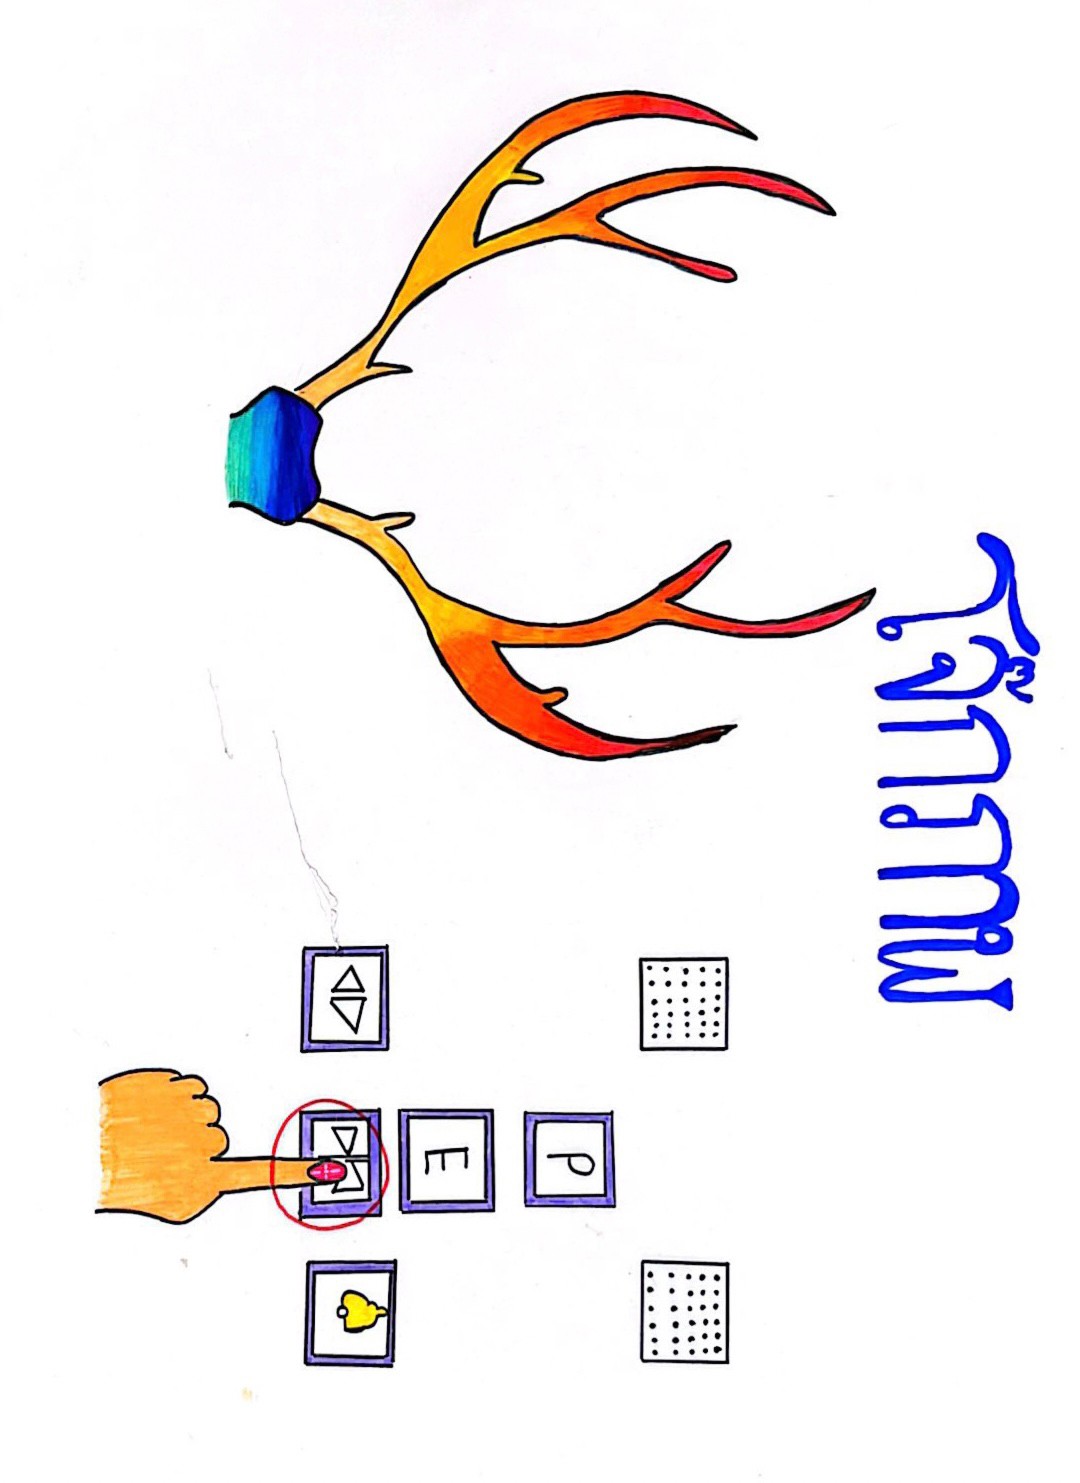 โจ๊กภาพ
P
E